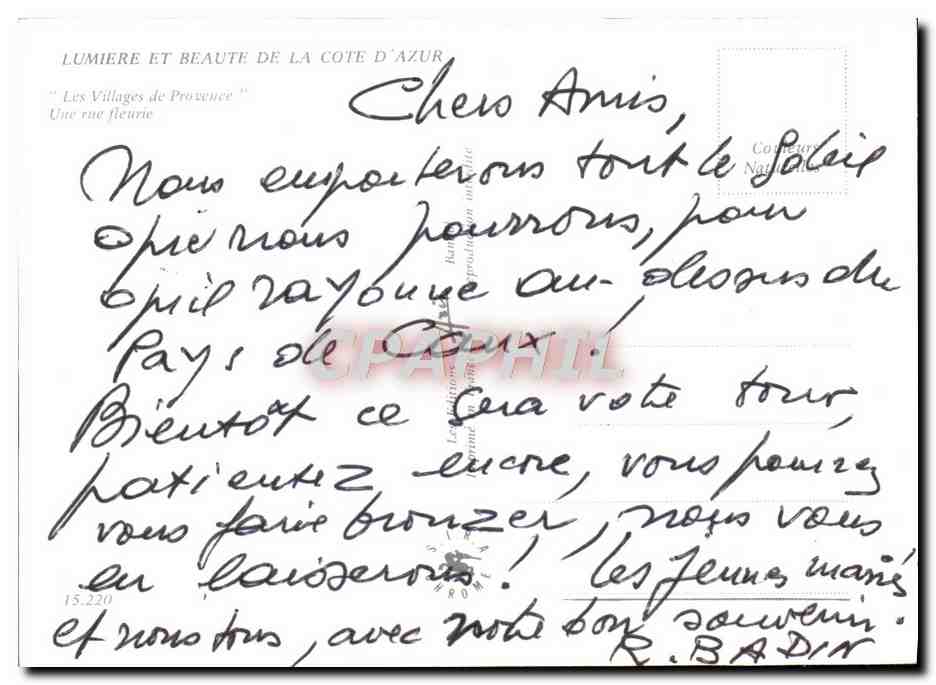 LUMIERE ET BEAUTE DE LA COTE D'AZUR
" Les Villages de Provence "
Une rue fleurie
Couleurs
Naturelles
Chers Amis,
Nous emporterons tout le Soleil
que nous pourrons, pour
qu'il rayonne au-dessus du
Pays de Caux !
Bientôt ce sera votre tour,
patientez encore, vous pourrez
vous faire bronzer, nous vous
en laisserons ! Les Jeunes mariés
et nous tous, avec notre bon souvenir.
R. BADIN
15.220
CPAPHIL